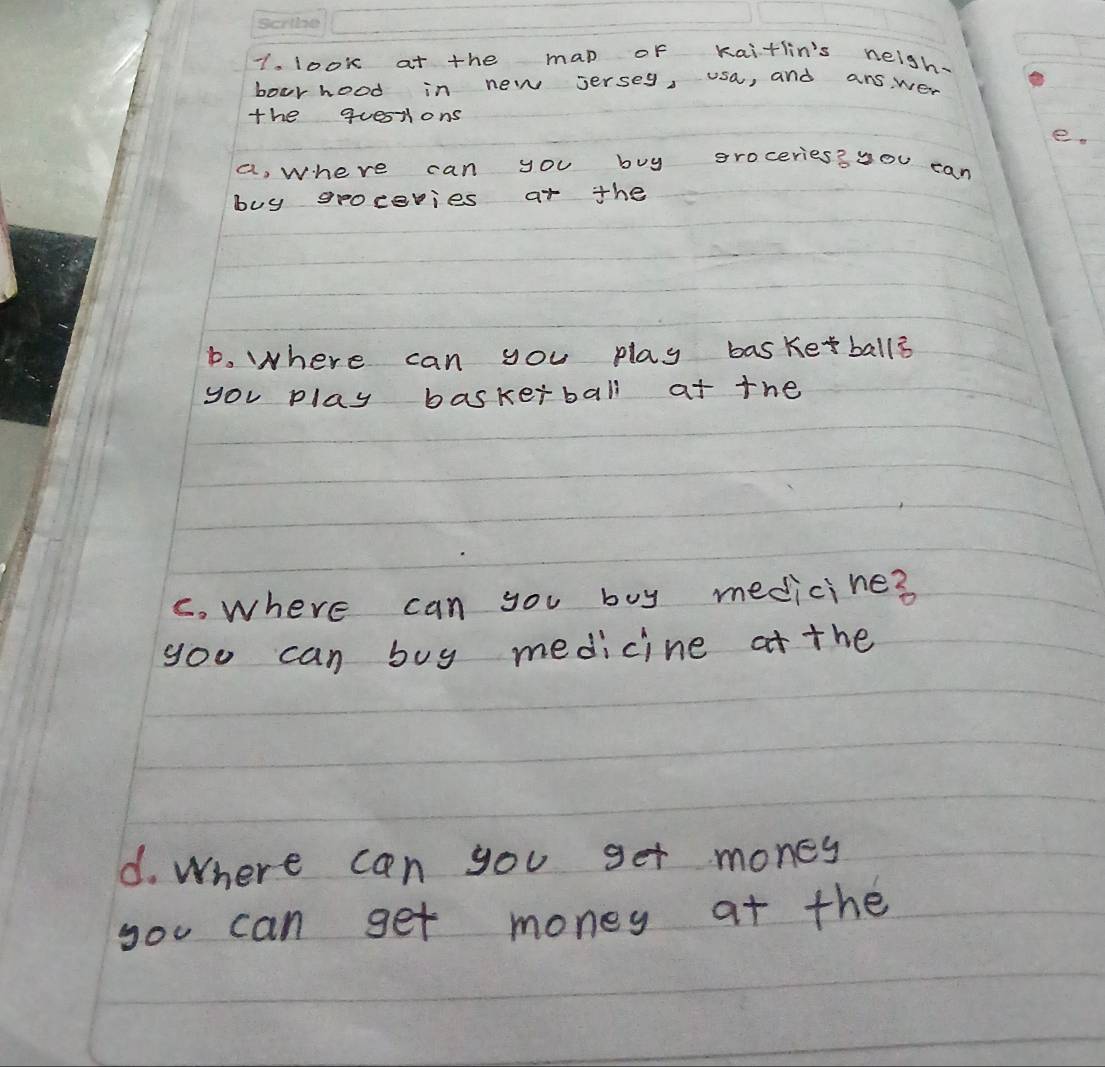 Scribe
1. look at the map of Kaitlin's neigh-
bourhood in new jersey, usa, and answer
the questions
a, where can you buy groceries? you can
buy groceries at the
b. Where can you play basketball?
you play basketball at the
c. Where can you buy medicine?
you can buy medicine at the
d. Where can you get money
you can get money at the
e.